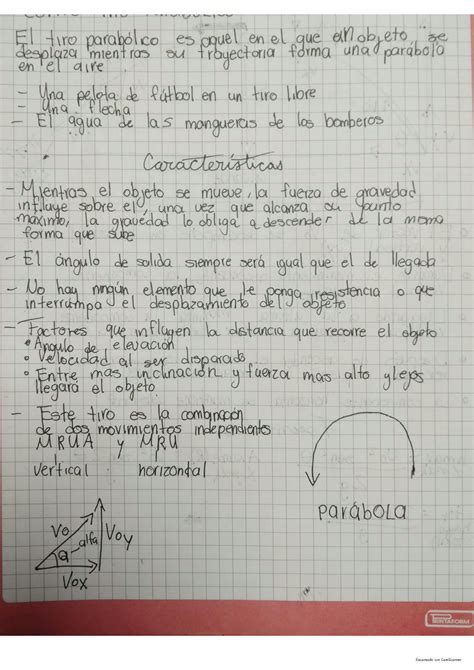 El tiro parabólico es aquel en el que un objeto se
desplaza mientras su trayectoria forma una parábola
en el aire
- Una pelota de fútbol en un tiro libre
- Una flecha
- El agua de las mangueras de los bomberos
Características
- Mientras el objeto se mueve, la fuerza de gravedad
influye sobre el, una vez que alcanza su punto
maximo, la gravedad lo obliga a descender de la misma
forma que sube
- El ángulo de salida siempre será igual que el de llegada
- No hay ningún elemento que le ponga resistencia o que
interrumpa el desplazamiento del objeto
- Factores que influyen la distancia que recorre el objeto
• Ángulo de elevación
• Velocidad al ser disparado
• Entre mas inclinación y fuerza mas alto y lejos
llegará el objeto
- Este tiro es la combinación
de dos movimientos independientes
MRUA y MRU
vertical horizontal
parábola
Vo
a - alfa
Voy
Vox
PENTAFORM
Escaneado con CamScanner